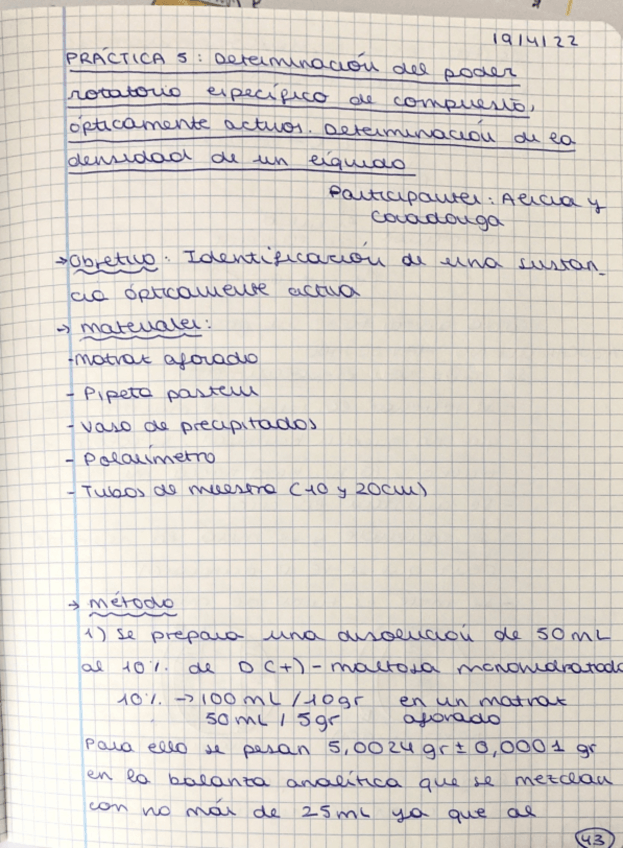 19/4/22
PRÁCTICA 5: Determinación del poder
rotatorio específico de compuestos
ópticamente activos. Determinación de la
densidad de un líquido
Participantes: Alicia y
Covadonga
→ Objetivo: Identificación de una sustan-
cia ópticamente activa
→ materiales:
- Matraz aforado
- Pipeta pasteur
- Vaso de precipitados
- Polarímetro
- Tubos de muestra (10 y 20cm)
→ método
1) Se prepara una disolución de 50 mL
al 10% de D(+)-maltosa monohidratada
10% → 100 mL / 10gr en un matraz
50 mL / 5gr aforado
Para ello se pesan 5,0024 gr ± 0,0001 gr
en la balanza analítica que se mezclan
con no más de 25mL ya que al
43